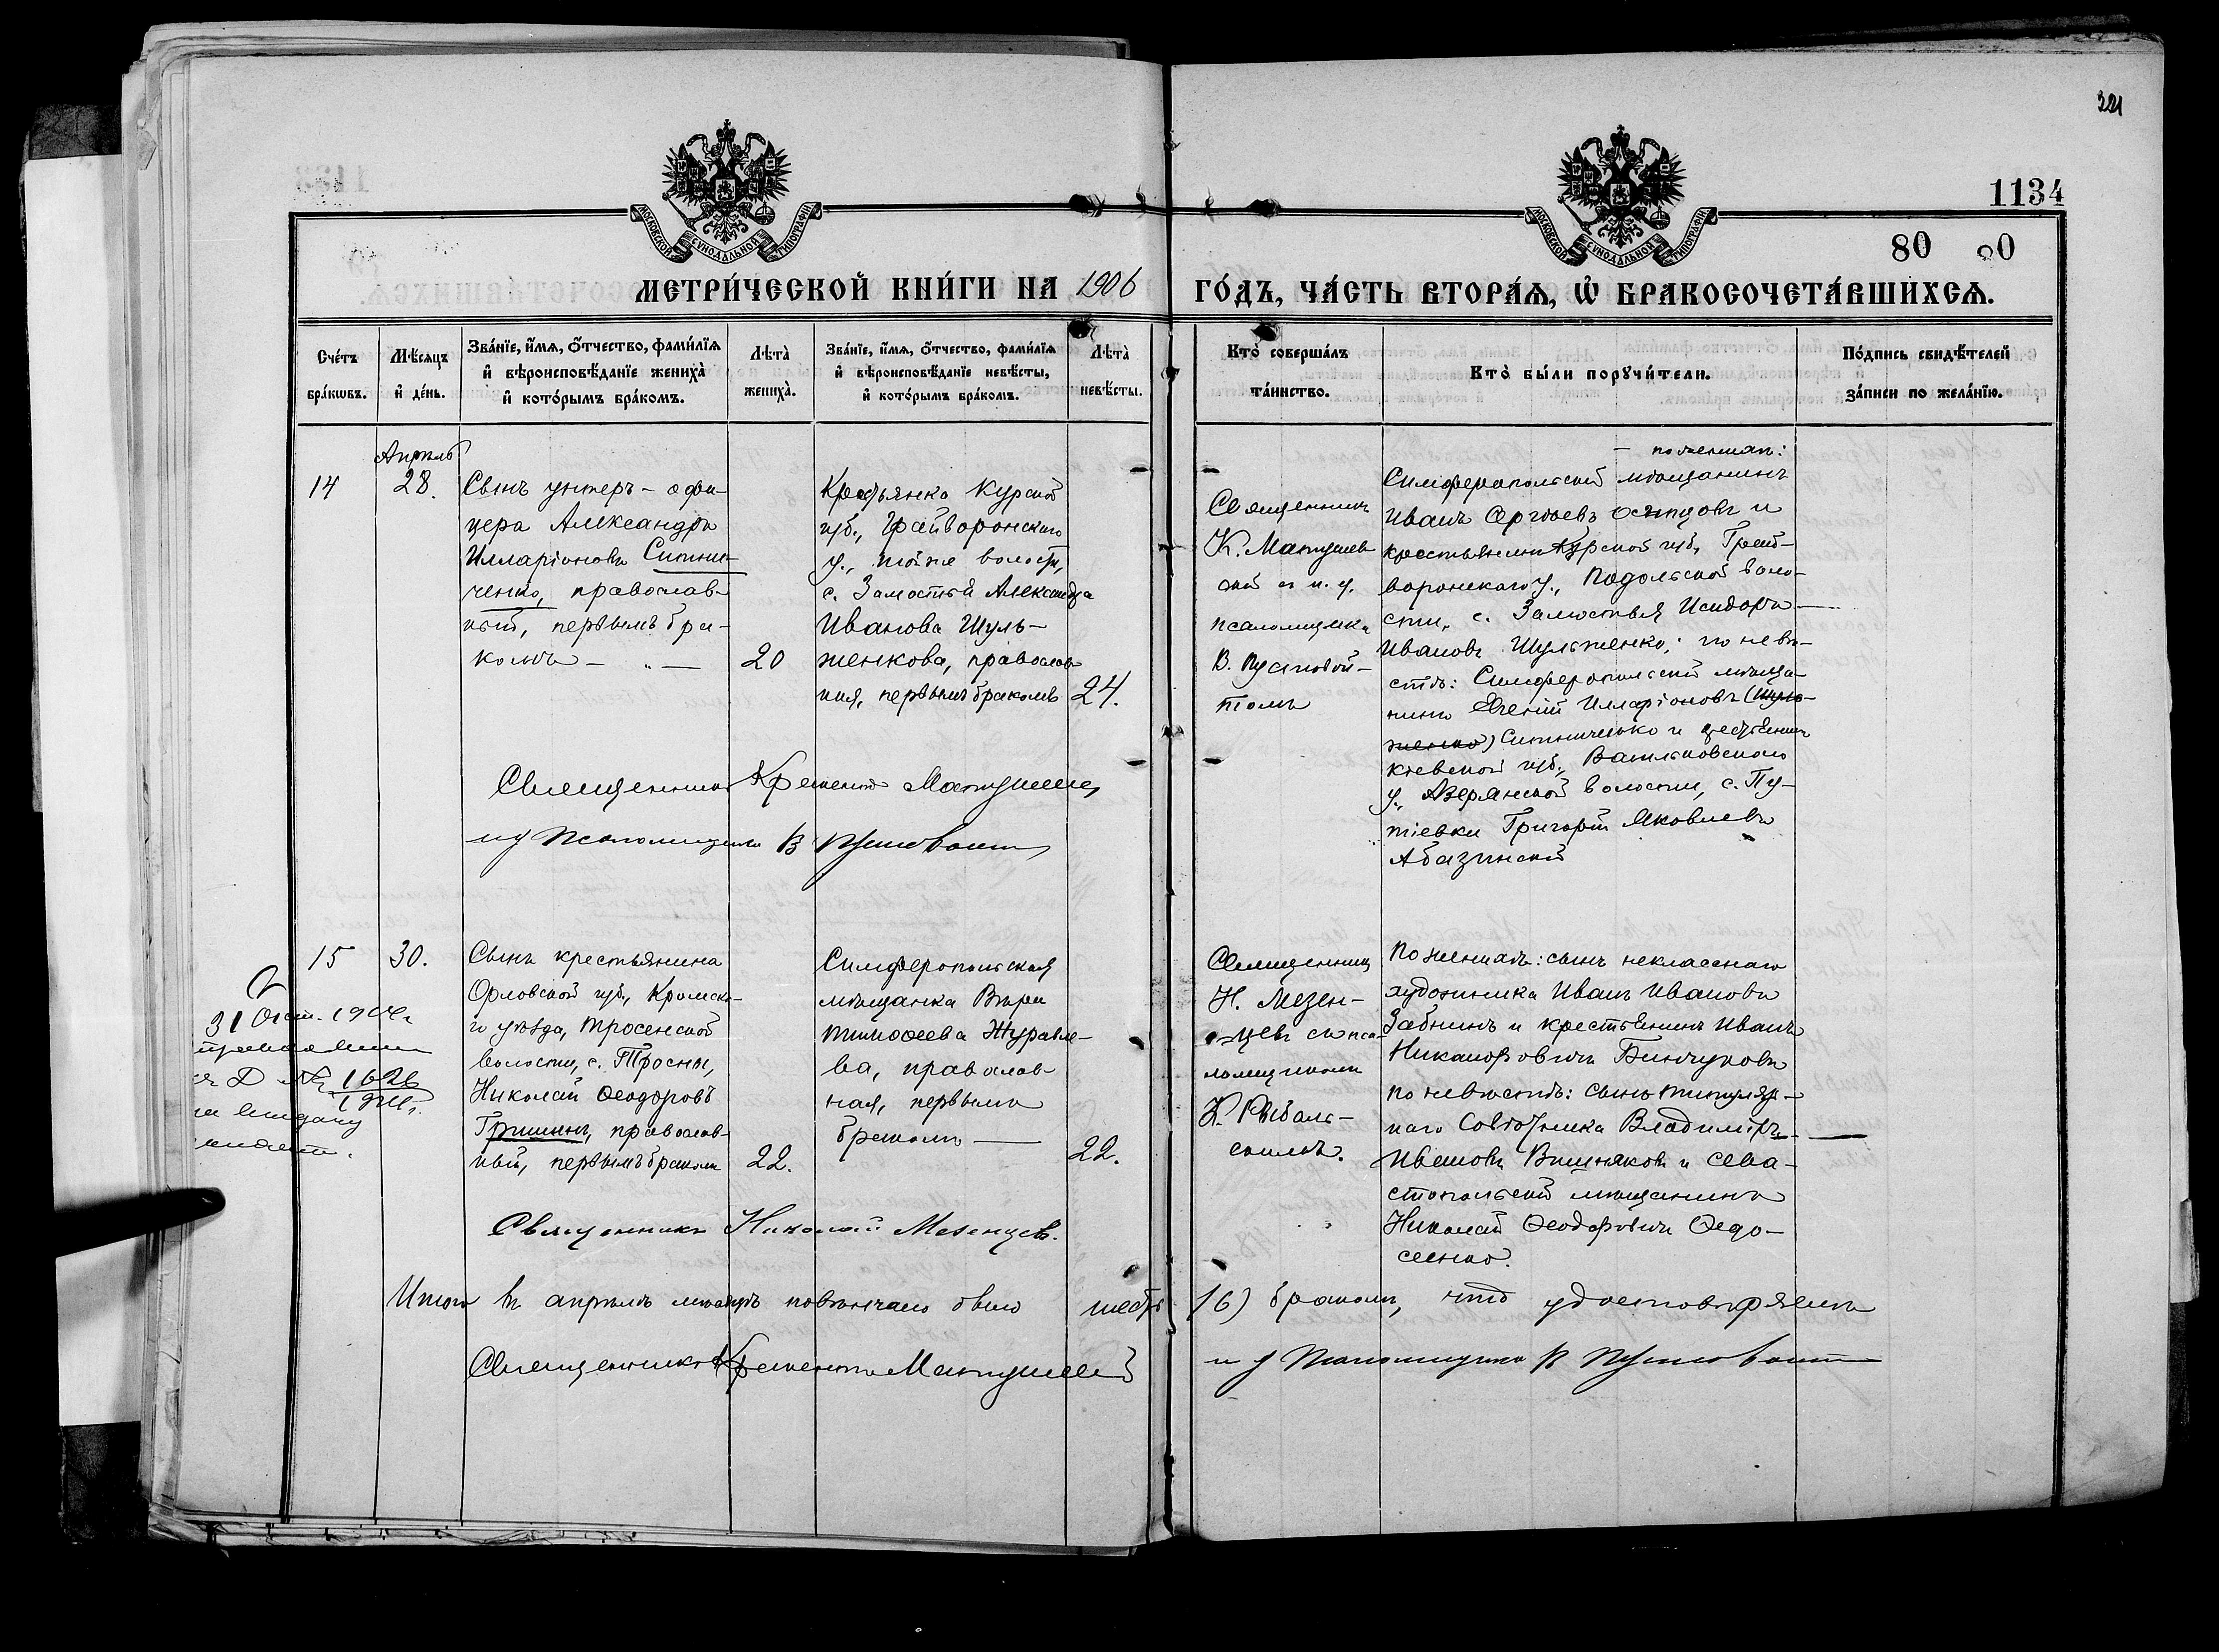 221
1134
80 80
МОСКОВСКОЙ СѴНОДАЛЬНОЙ ТИПОГРАФІИ
МОСКОВСКОЙ СѴНОДАЛЬНОЙ ТИПОГРАФІИ
МЕТРИ́ЧЕСКОЙ КНИ́ГИ НА 1906 ГО́ДЪ, ЧА́СТЬ ВТОРА́Ѧ, Ѡ҆ БРАКОСОЧЕТА́ВШИХСѦ.
Сче́тъ
бра́кѡвъ.
Мѣ́сѧцъ
и҆ де́нь.
Зва́нїе, и҆́мѧ, ѻ҆́тчество, фами́лїѧ
и҆ вѣроисповѣ́данїе жениха̀
и҆ кото́рымъ бра́комъ.
Лѣта̀
жениха̀.
Зва́нїе, и҆́мѧ, ѻ҆́тчество, фами́лїѧ
и҆ вѣроисповѣ́данїе невѣ́сты,
и҆ кото́рымъ бра́комъ.
Лѣта̀
невѣ́сты.
Кто̀ соверша́лъ
та́инство.
Кто̀ бы́ли порꙋчи́тели.
По́дпись свидѣ́телей
за́писи по жела́нїю.
14
Апрѣль
28.
Сынъ унтеръ-офи-
цера Александръ
Илларіоновъ Ситни-
ченко, православ-
ный, первымъ бра-
комъ
20
Крестьянка Курской
губ., Грайворонскаго
у., тойже волости,
с. Замостья Александра
Иванова Шуль-
женкова, православ-
ная, первымъ бракомъ
24.
Священникъ
К. Матушев-
скій и. у.
псаломщика
В. Пустовой-
томъ
по женихѣ:
Симферопольскій мѣщанинъ
Иванъ Сергѣевъ Осиповъ и
крестьянинъ Курской губ., Грай-
воронскаго у., Подольской воло-
сти, с. Замостья Исидоръ
Ивановъ Шульженко; по невѣ-
стѣ: Симферопольскій мѣща-
нинъ Евгеній Илларіоновъ (Шуль-
женко) Ситниченко и крестьянинъ
Кіевской губ., Васильковскаго
у., Озерянской волости, с. Пу-
тіевки Григорій Яковлевъ
Абазинскій
Священникъ Климентъ Матушевскій
и у псаломщика В Пустовойтъ
15
30.
Сынъ крестьянина
Орловской губ., Кромска-
го уѣзда, Тросенской
волости, с. Тросны,
Николай Ѳеодоровъ
Гришинъ, православ-
ный, первымъ бракомъ
22.
Симферопольская
мѣщанка Вѣра
Тимоѳеева Журавле-
ва, православ-
ная, первымъ
бракомъ
22.
Священникъ
Н. Мезен-
цевъ съ пса-
ломщикомъ
К. Рыбаль-
скимъ.
По женихѣ: сынъ некласснаго
художника Иванъ Ивановъ
Забнинъ и крестьянинъ Иванъ
Никаноровичъ Бинчуковъ
по невѣстѣ: сынъ титуляр-
наго Совѣтника Владиміръ
Ивановъ Вишняковъ и Сева-
стопольскій мѣщанинъ
Николай Ѳеодоровичъ Ѳедо-
сенко.
31 Окт.
№ 1626
Священникъ Николай Мезенцевъ.
Итого въ апрѣлѣ мѣсяцѣ повѣнчано было шесть (6) браковъ, что удостовѣряемъ
Священникъ Климентъ Матушевскій
и у псаломщика В Пустовойтъ